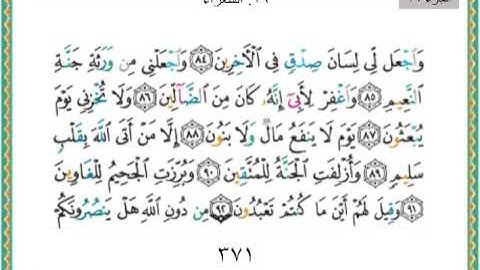 وَٱجْعَل لِّى لِسَانَ صِدْقٍ فِى ٱلْأَخِرِينَ ﴿٨٤﴾ وَٱجْعَلْنِى مِن وَرَثَةِ جَنَّةِ
ٱلنَّعِيمِ ﴿٨٥﴾ وَٱغْفِرْ لِأَبِىٓ إِنَّهُۥ كَانَ مِنَ ٱلضَّآلِّينَ ﴿٨٦﴾ وَلَا تُخْزِنِى يَوْمَ
يُبْعَثُونَ ﴿٨٧﴾ يَوْمَ لَا يَنفَعُ مَالٌ وَلَا بَنُونَ ﴿٨٨﴾ إِلَّا مَنْ أَتَى ٱللَّهَ بِقَلْبٍ
سَلِيمٍ ﴿٨٩﴾ وَأُزْلِفَتِ ٱلْجَنَّةُ لِلْمُتَّقِينَ ﴿٩٠﴾ وَبُرِّزَتِ ٱلْجَحِيمُ لِلْغَاوِينَ
﴿٩١﴾ وَقِيلَ لَهُمْ أَيْنَ مَا كُنتُمْ تَعْبُدُونَ ﴿٩٢﴾ مِن دُونِ ٱللَّهِ هَلْ يَنصُرُونَكُمْ
٣٧١